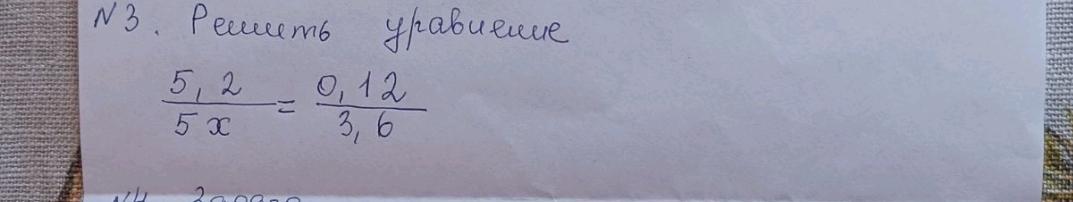 №3. Решить уравнение
5,2 / 5x = 0,12 / 3,6